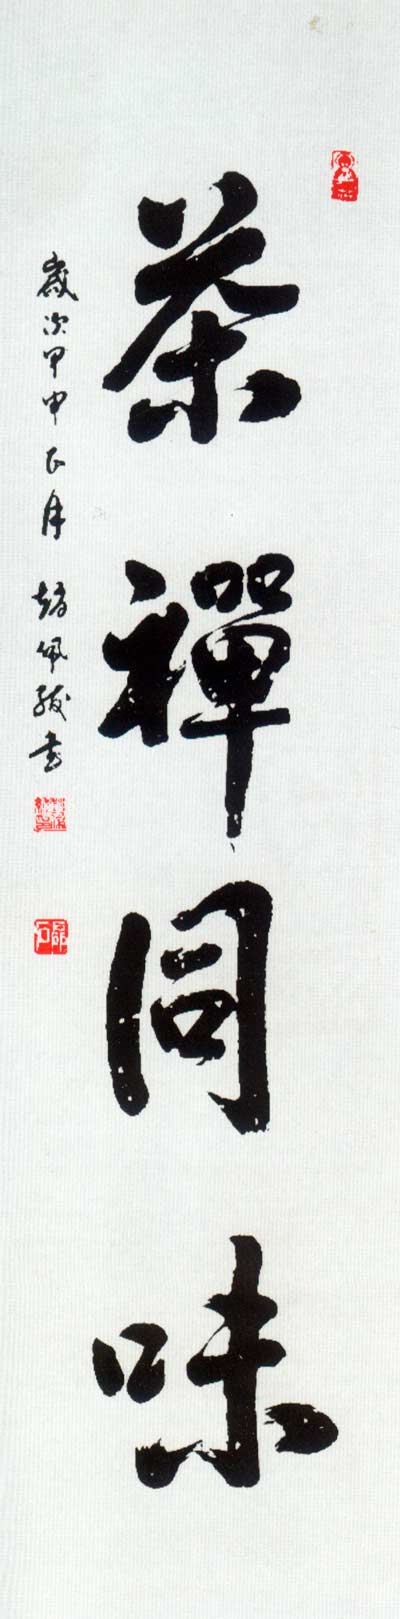 茶禪同味
歲次甲申正月 趙佩 書